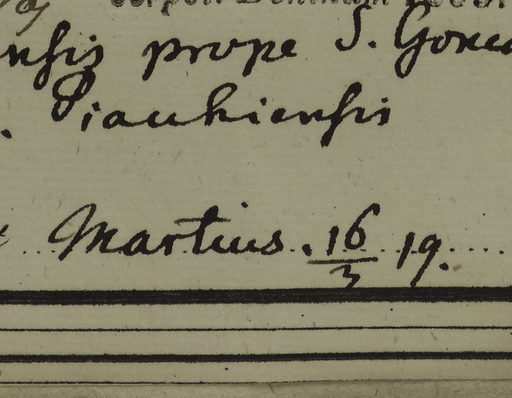 prope S. Gonca
Piauhiensis
Martius. 16/3 19.